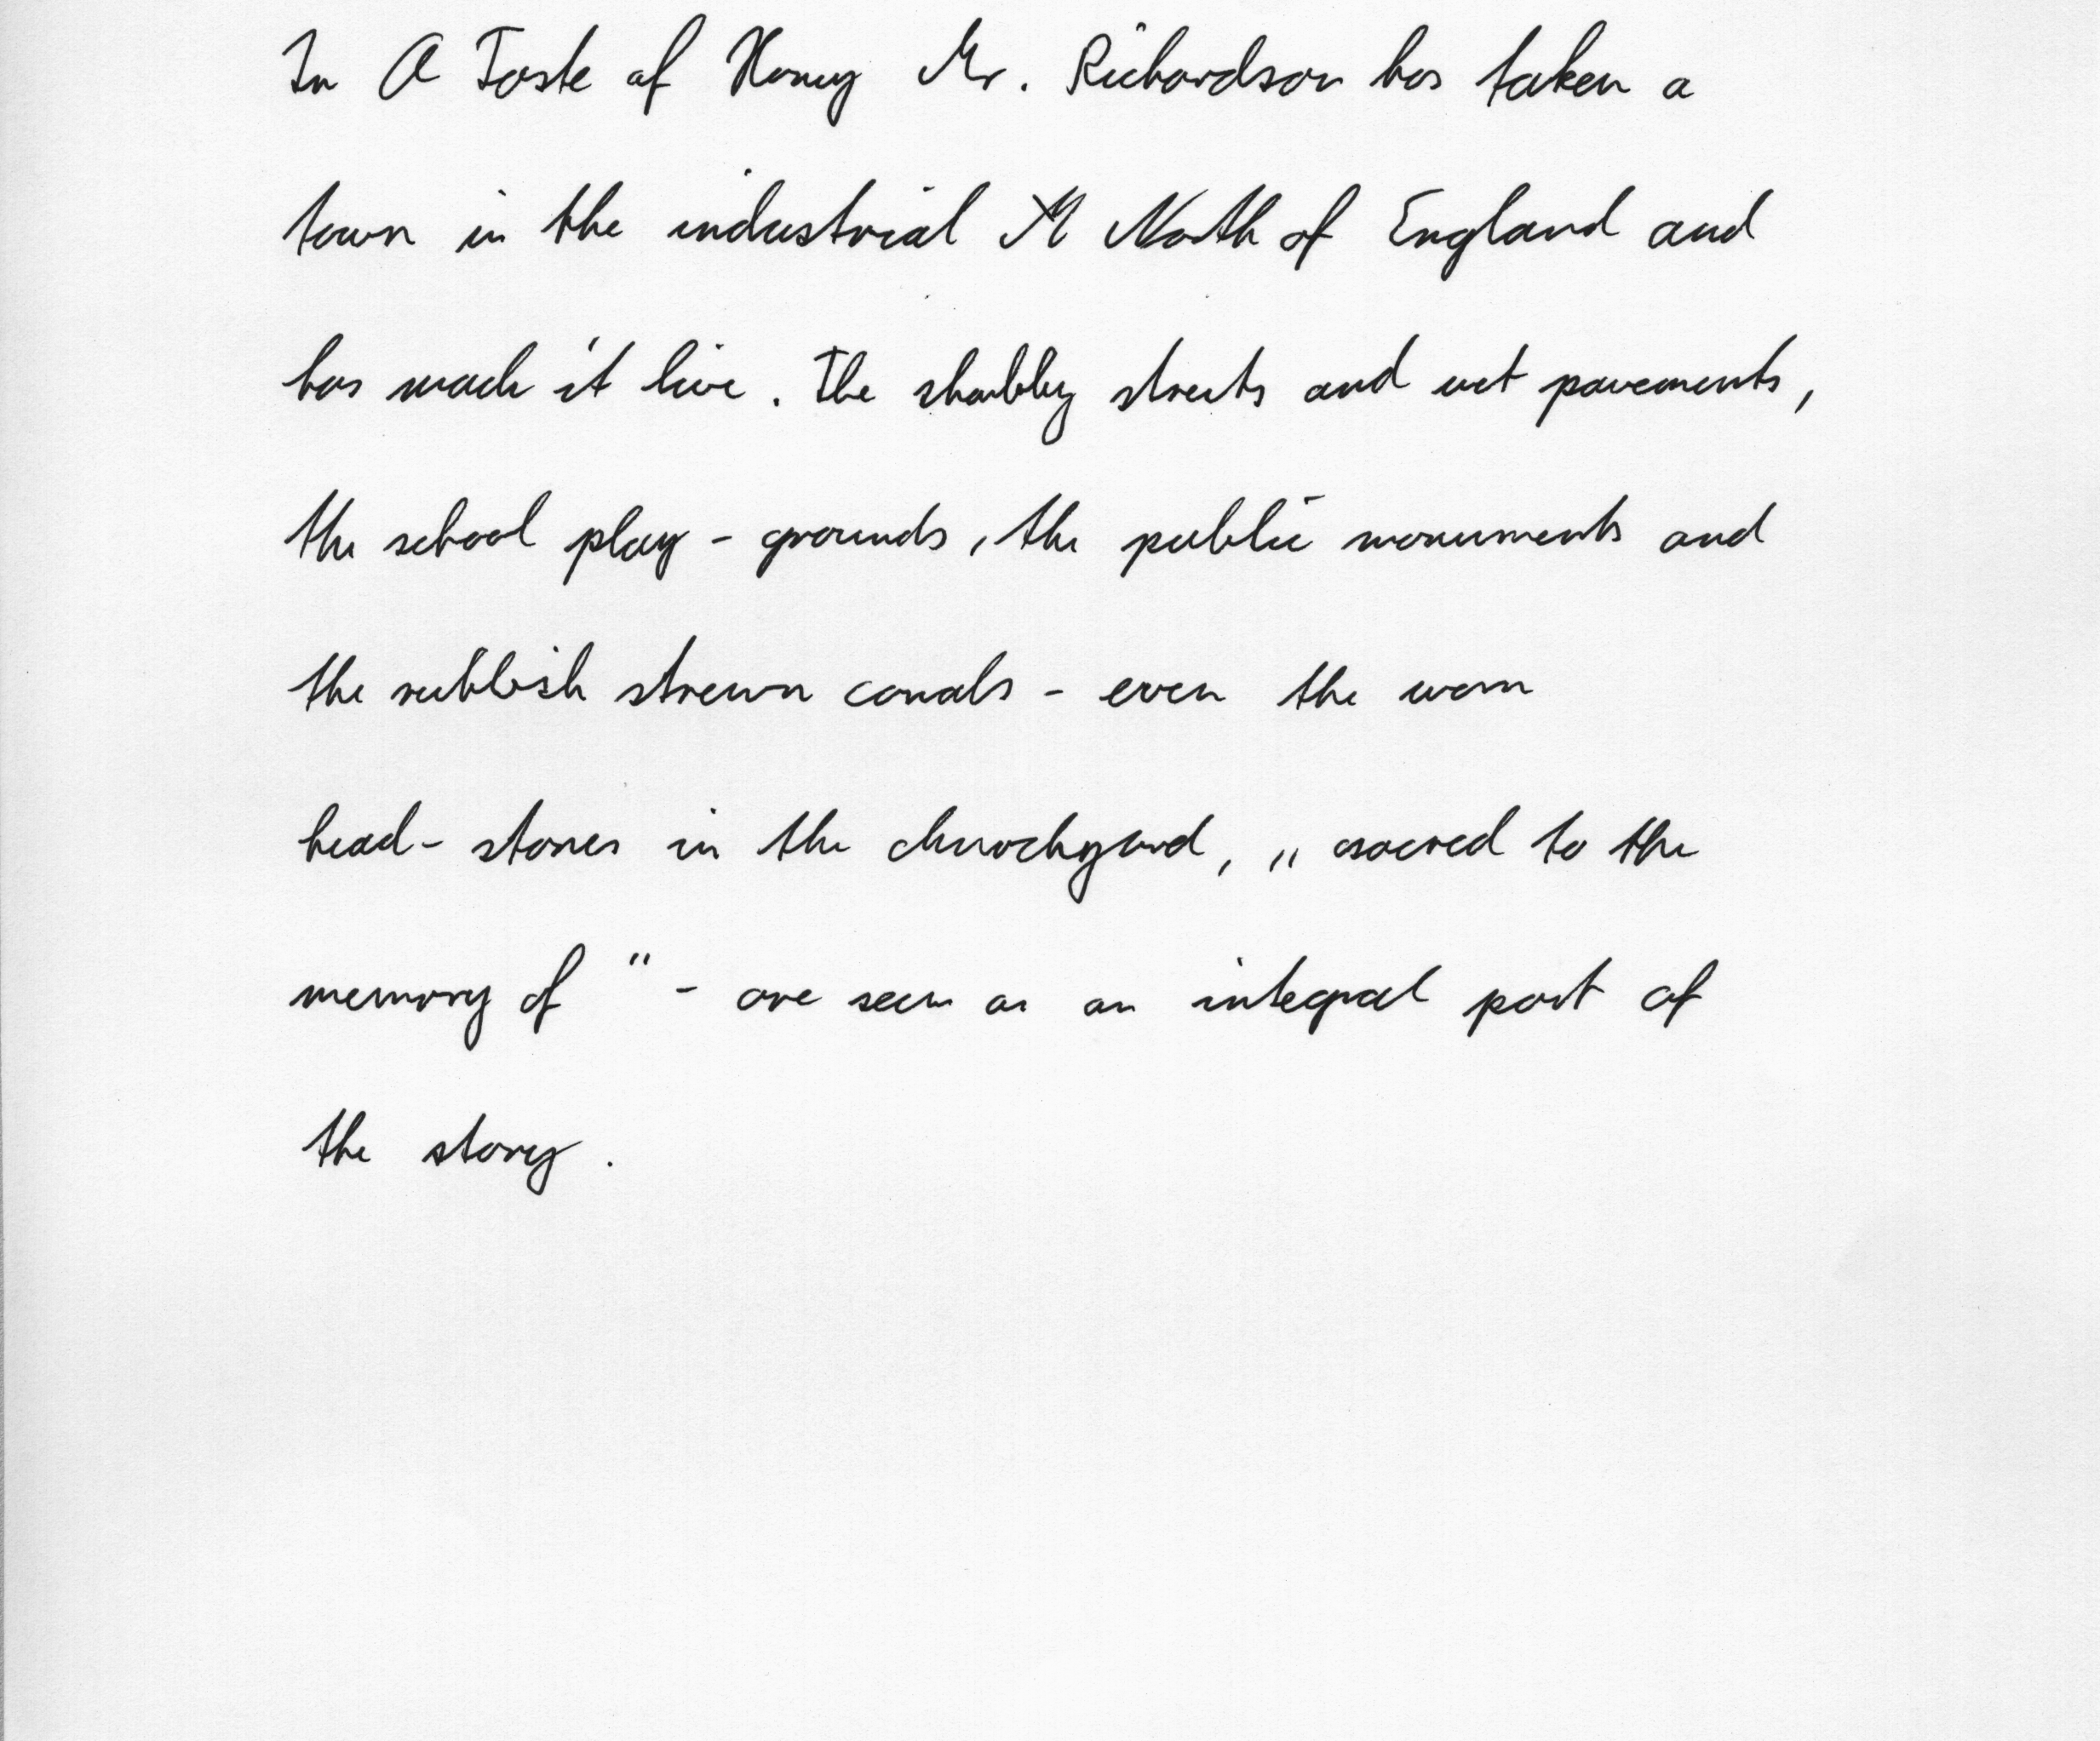 In A Taste of Honey Mr. Richardson has taken a
town in the industrial North of England and
has made it live. The shabby streets and wet pavements,
the school play-grounds, the public monuments and
the rubbish strewn canals - even the worn
head-stones in the churchyard, „sacred to the
memory of" - are seen as an integral part of
the story.